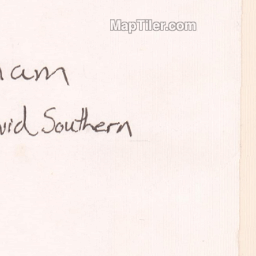 MapTiler.com
nam
vid Southern